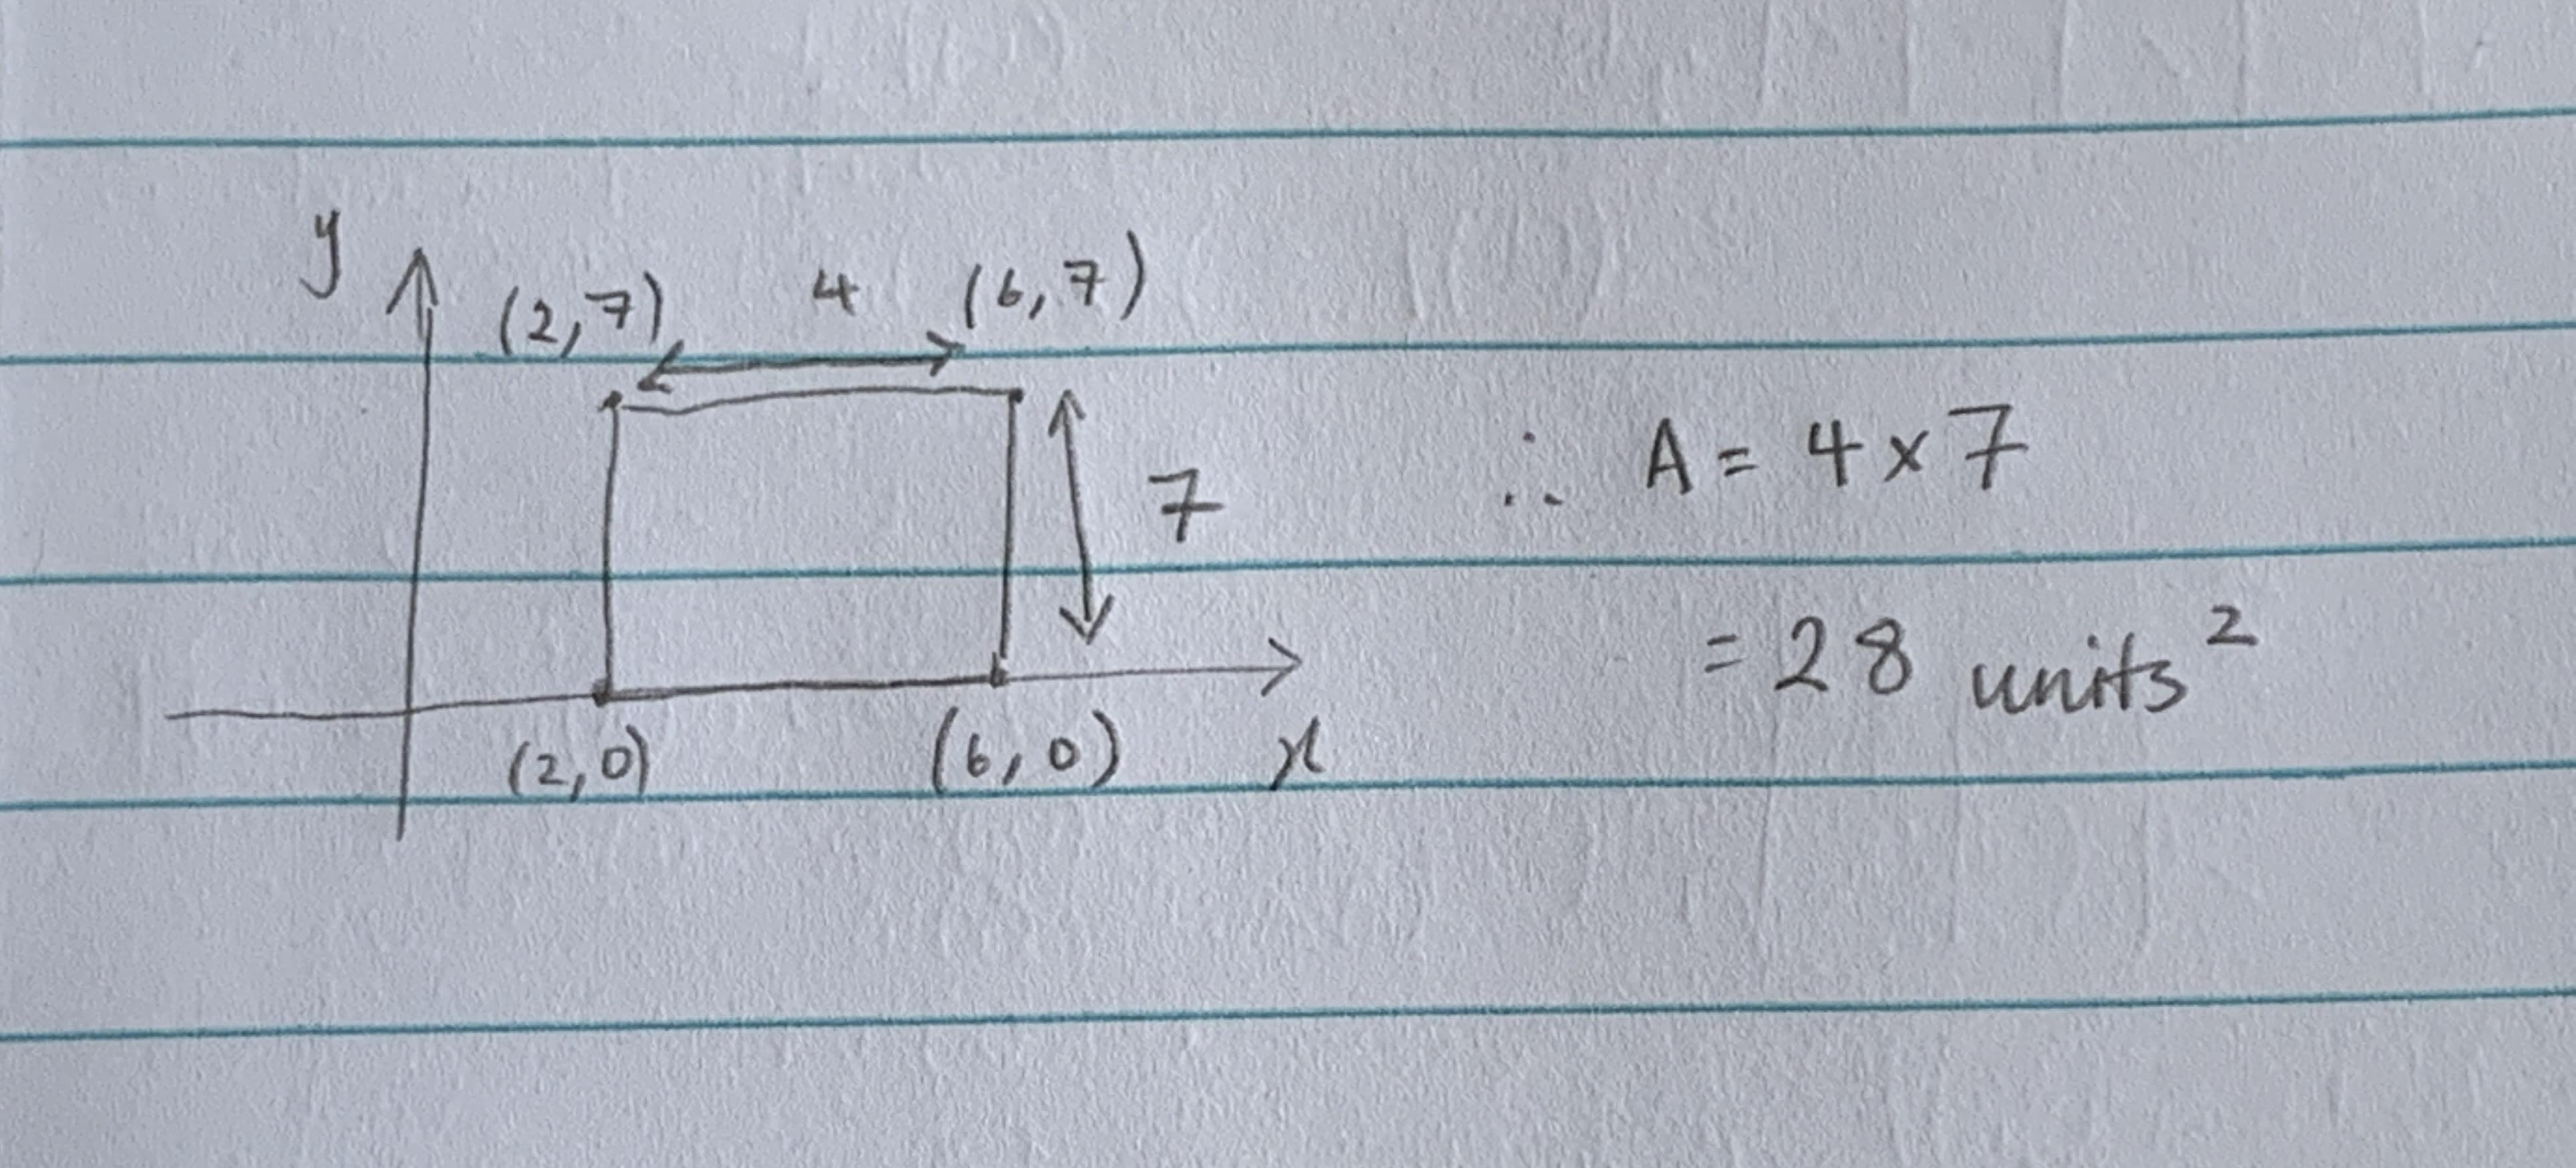 y
(2,7) 4 (6,7)
7
(2,0) (6,0) x
∴ A = 4 × 7
= 28 units²